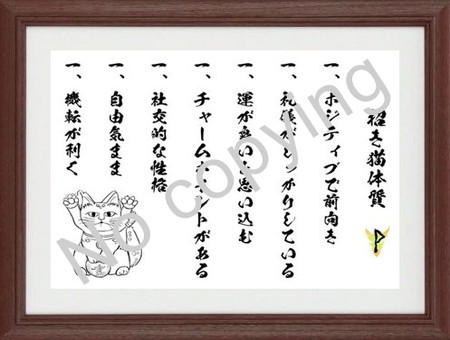 招き猫体質
一、ポジティブで前向き
一、礼儀がしっかりしている
一、運が良いと思い込む
一、チャームポイントがある
一、社交的な性格
一、自由気まま
一、機転が利く
No copying